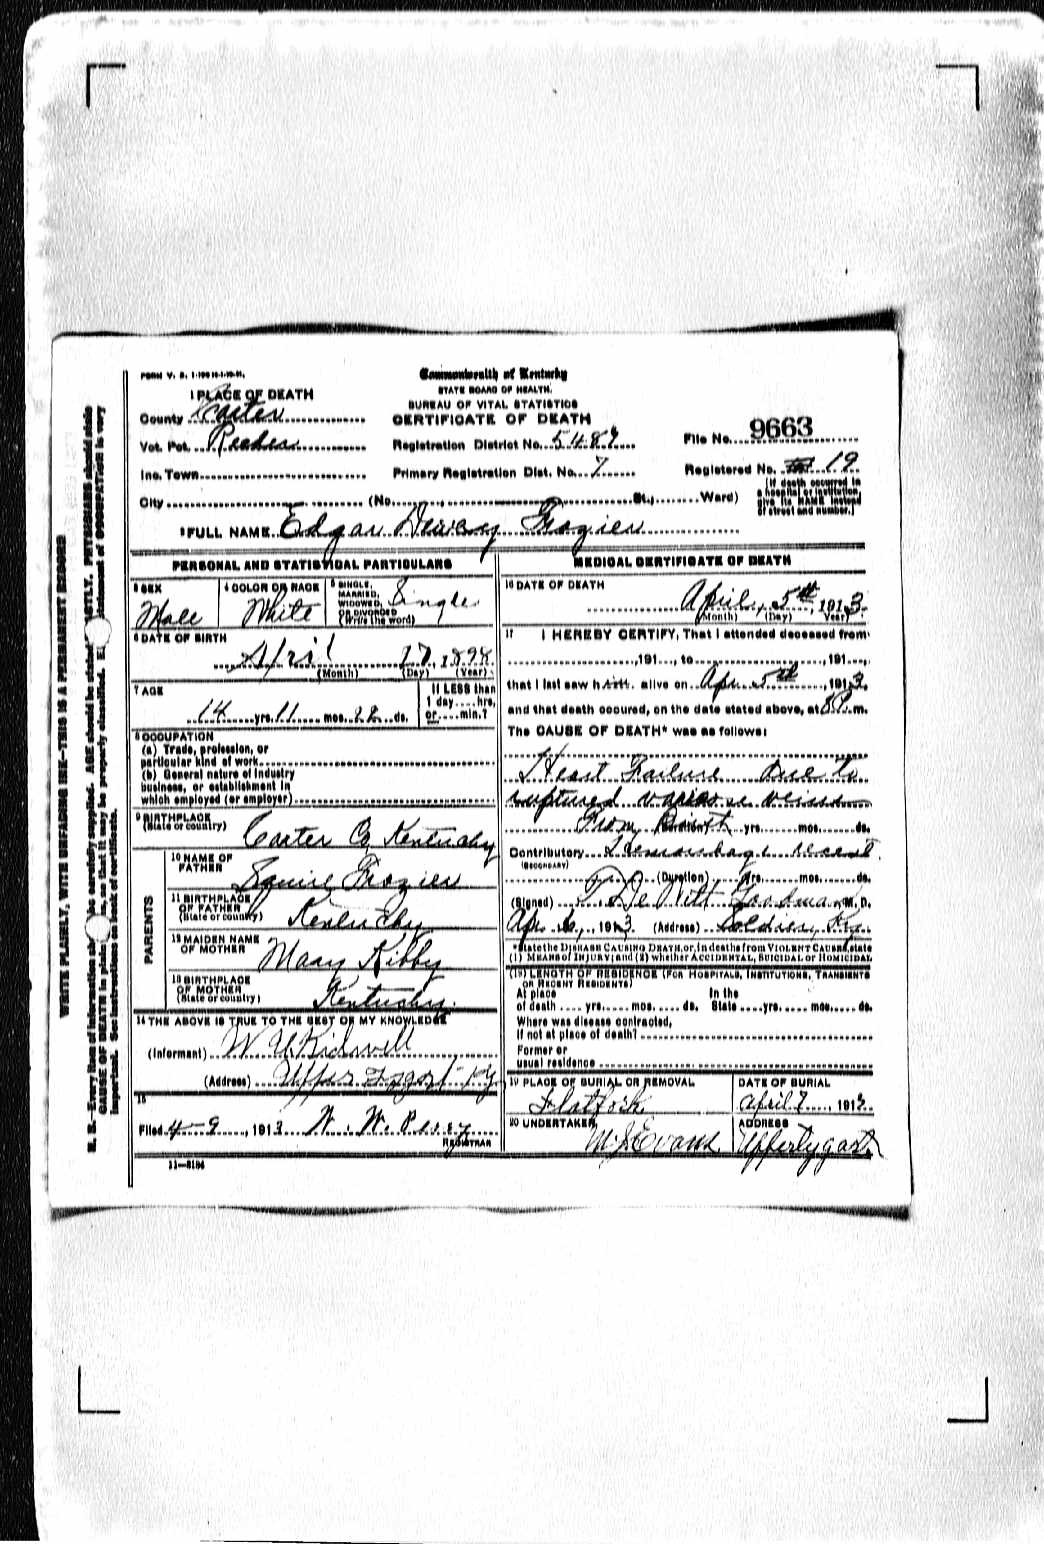 FORM V. S.
Commonwealth of Kentucky
STATE BOARD OF HEALTH.
BUREAU OF VITAL STATISTICS
CERTIFICATE OF DEATH
1 PLACE OF DEATH
County Carter
Vot. Pct.
Inc. Town
City (No. St., Ward)
Registration District No.
Primary Registration Dist. No. 7
File No. 9663
Registered No. 19
[If death occurred in
a hospital or institution,
give its NAME instead
of street and number.]
2 FULL NAME Edgar Dewey Frazier
PERSONAL AND STATISTICAL PARTICULARS
3 SEX
Male
4 COLOR OR RACE
White
5 SINGLE,
MARRIED,
WIDOWED,
OR DIVORCED
(Write the word)
Single
6 DATE OF BIRTH
April 17, 1898
(Month) (Day) (Year)
7 AGE
14 yrs. 11 mos. ds.
If LESS than
1 day hrs.
or min.?
8 OCCUPATION
(a) Trade, profession, or
particular kind of work
(b) General nature of industry
business, or establishment in
which employed (or employer)
9 BIRTHPLACE
(State or country)
Carter Co Kentucky
PARENTS
10 NAME OF
FATHER
Squire Frazier
11 BIRTHPLACE
OF FATHER
(State or country)
Kentucky
12 MAIDEN NAME
OF MOTHER
Mary Kibby
13 BIRTHPLACE
OF MOTHER
(State or country)
Kentucky.
14 THE ABOVE IS TRUE TO THE BEST OF MY KNOWLEDGE
(Informant) Kidwell
(Address) Upper Tygart Ky
15
Filed 4-9, 1913 W. W.
REGISTRAR
11-3184
MEDICAL CERTIFICATE OF DEATH
16 DATE OF DEATH
April, 5th, 1913.
(Month) (Day) Year)
17 I HEREBY CERTIFY, That I attended deceased from
, 191 , to , 191 ,
that I last saw him alive on Apr 5th, 1913,
and that death occured, on the date stated above, at 8 P. m.
The CAUSE OF DEATH* was as follows:
Heart Failure Due to
ruptured varicose veins
From Birth yrs. mos. ds.
Contributory Hemorrhage recent
(SECONDARY)
(Duration) yrs. mos. ds.
(Signed) De Witt Goodman M. D.
Apr. 6, 1913 (Address) Soldier, Ky.
*State the DISEASE CAUSING DEATH, or, in deaths from VIOLENT CAUSES, state
(1) MEANS of INJURY; and (2) whether ACCIDENTAL, SUICIDAL OR HOMICIDAL
(18) LENGTH OF RESIDENCE (FOR HOSPITALS, INSTITUTIONS, TRANSIENTS
OR RECENT RESIDENTS)
At place
of death yrs. mos. ds.
In the
State yrs. mos. ds.
Where was disease contracted,
if not at place of death?
Former or
usual residence
19 PLACE OF BURIAL OR REMOVAL
Flatfork
DATE OF BURIAL
April 7, 1913
20 UNDERTAKER,
M J Evans
ADDRESS
Uppertygart
WRITE PLAINLY, WITH UNFADING INK—THIS IS A PERMANENT RECORD
important. See instructions on back of certificate.